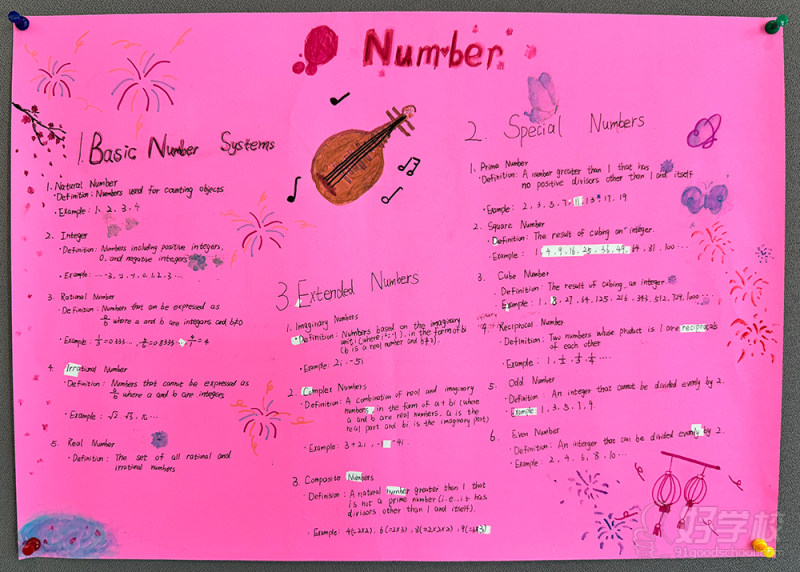 Number
1. Basic Number Systems
1. Natural Number
· Definition: Numbers used for counting objects
· Example: 1, 2, 3, 4
2. Integer
· Definition: Numbers including positive integers,
0, and negative integers
· Example:
3. Rational Number
· Definition: Numbers that can be expressed as
a/b where a and b are integers and b≠0
· Example: 1/3=0.333...
4. Irrational Number
· Definition: Numbers that cannot be expressed as
a/b where a and b are integers
· Example: √2, √3, π, ...
5. Real Number
· Definition: The set of all rational and
irrational numbers
3. Extended Numbers
1. Imaginary Numbers
· Definition: Numbers based on the imaginary
unit i (where i²=-1), in the form of bi
(b is a real number and b≠0).
· Example: 2i, -5i
2. Complex Numbers
· Definition: A combination of real and imaginary
numbers, in the form of a+bi (where
a and b are real numbers, a is the
real part and bi is the imaginary part)
· Example: 3+2i, -1-4i
3. Composite Numbers
· Definition: A natural number greater than 1 that
is not a prime number (i.e., it has
divisors other than 1 and itself).
· Example: 4(=2×2), 6(=2×3), 8(=2×2×2), 9(=3×3)
2. Special Numbers
1. Prime Number
· Definition: A number greater than 1 that has
no positive divisors other than 1 and itself
· Example: 2, 3, 5, 7, 11, 13, 17, 19
2. Square Number
· Definition: The result of cubing an integer.
· Example: 1, 4, 9, 16, 25, 36, 49, 64, 81, 100 ...
3. Cube Number
· Definition: The result of cubing an integer
· Example: 1, 8, 27, 64, 125, 216, 343, 512, 729, 1000 ...
4. Reciprocal Number
· Definition: Two numbers whose product is 1 are reciprocals
of each other
· Example: 1, 1/2, 1/3, 1/4 ...
5. Odd Number
· Definition: An integer that cannot be divided evenly by 2.
· Example: 1, 3, 5, 7, 9
6. Even Number
· Definition: An integer that can be divided evenly by 2.
· Example: 2, 4, 6, 8, 10 ...
好学校
91goodschool.com